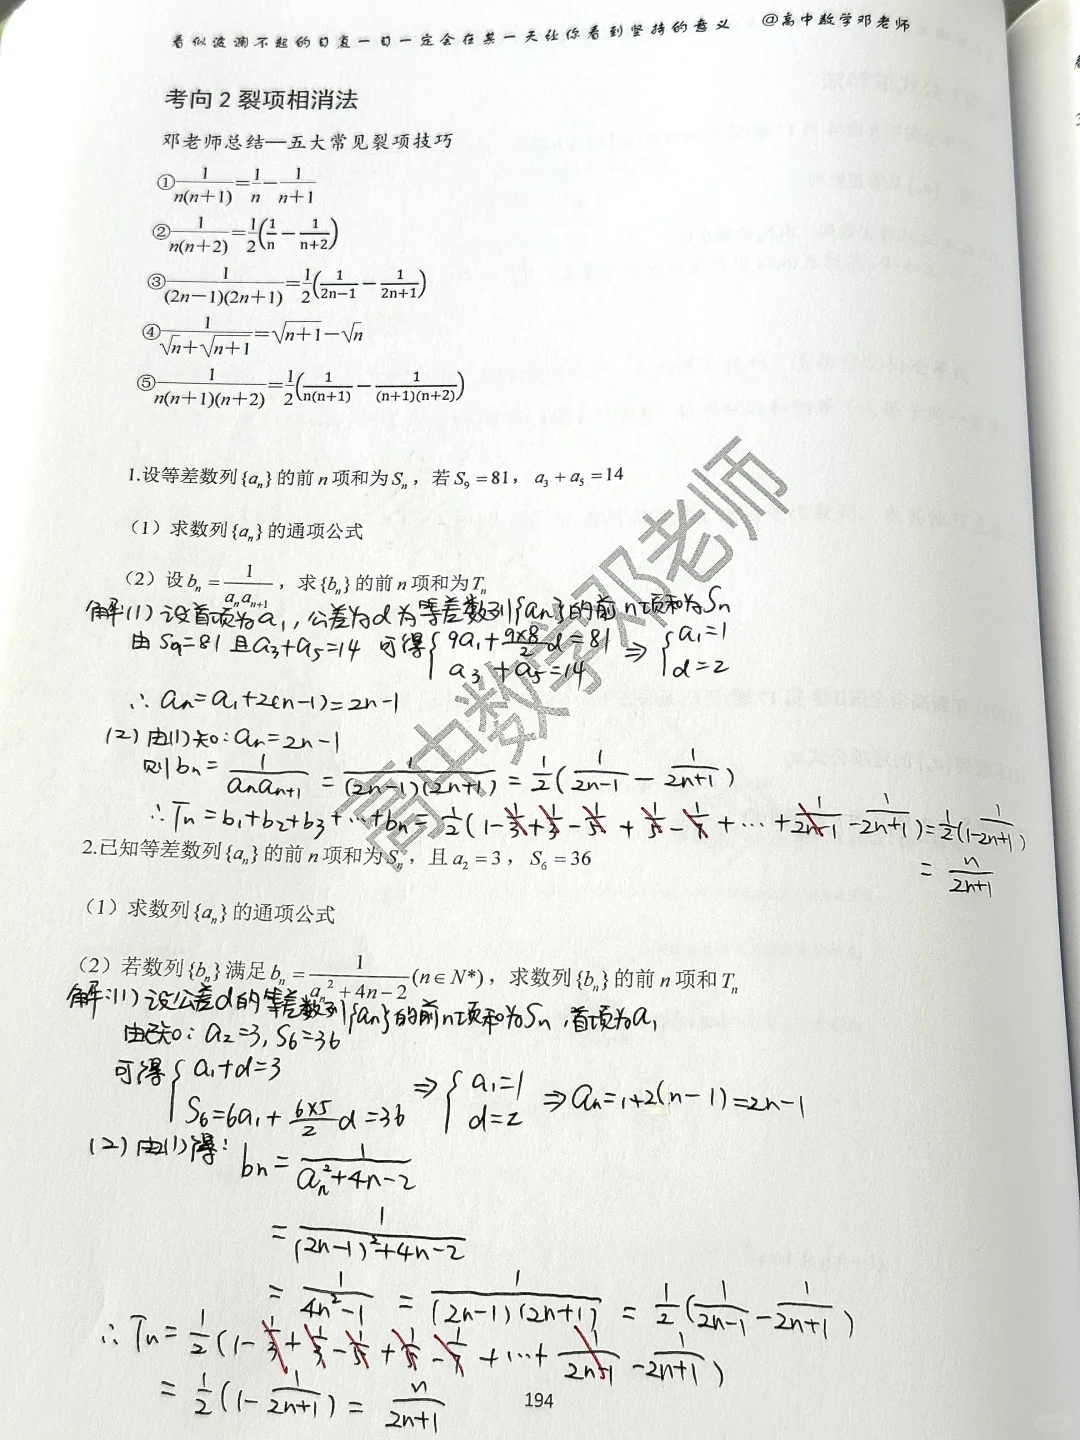 看似波澜不起的日复一日一定会在某一天让你看到坚持的意义 @高中数学邓老师
考向 2 裂项相消法
邓老师总结—五大常见裂项技巧
①1/(n(n+1))=1/n−1/(n+1)
②1/(n(n+2))=1/2(1/n−1/(n+2))
③1/((2n−1)(2n+1))=1/2(1/(2n−1)−1/(2n+1))
④1/(√n+√(n+1))=√(n+1)−√n
⑤1/(n(n+1)(n+2))=1/2(1/(n(n+1))−1/((n+1)(n+2)))
1.设等差数列{aₙ}的前n项和为Sₙ，若S₉=81，a₃+a₅=14
（1）求数列{aₙ}的通项公式
（2）设bₙ=1/(aₙaₙ₊₁)，求{bₙ}的前n项和为Tₙ
解:(1)设首项为a₁,公差为d为等差数列{an}的前n项和为Sn
由S₉=81且a₃+a₅=14 可得{9a₁+(9×8)/2 d=81 ⇒ {a₁=1
a₃+a₅=14 d=2
∴an=a₁+2(n-1)=2n-1
(2)由(1)知:an=2n-1
则bn=1/(anan+1)=1/((2n-1)(2n+1))=1/2(1/(2n-1)-1/(2n+1))
∴Tn=b₁+b₂+b₃+…+bn=1/2(1-1/3+1/3-1/5+1/5-1/7+…+1/(2n-1)-1/(2n+1))=1/2(1-1/(2n+1))
=n/(2n+1)
2.已知等差数列{aₙ}的前n项和为Sₙ，且a₂=3，S₆=36
（1）求数列{aₙ}的通项公式
（2）若数列{bₙ}满足bₙ=1/(aₙ²+4n−2)(n∈N*)，求数列{bₙ}的前n项和Tₙ
解:(1)设公差d的等差数列{an}的前n项和为Sn,首项为a₁
由已知:a₂=3,S₆=36
可得{a₁+d=3 ⇒ {a₁=1 ⇒an=1+2(n-1)=2n-1
S₆=6a₁+(6×5)/2 d=36 d=2
(2)由(1)得:bn=1/(an²+4n-2)
=1/((2n-1)²+4n-2)
=1/(4n²-1)=1/((2n-1)(2n+1))=1/2(1/(2n-1)-1/(2n+1))
∴Tn=1/2(1-1/3+1/3-1/5+1/5-1/7+…+1/(2n-1)-1/(2n+1))
=1/2(1-1/(2n+1))=n/(2n+1)
194
高中数学邓老师